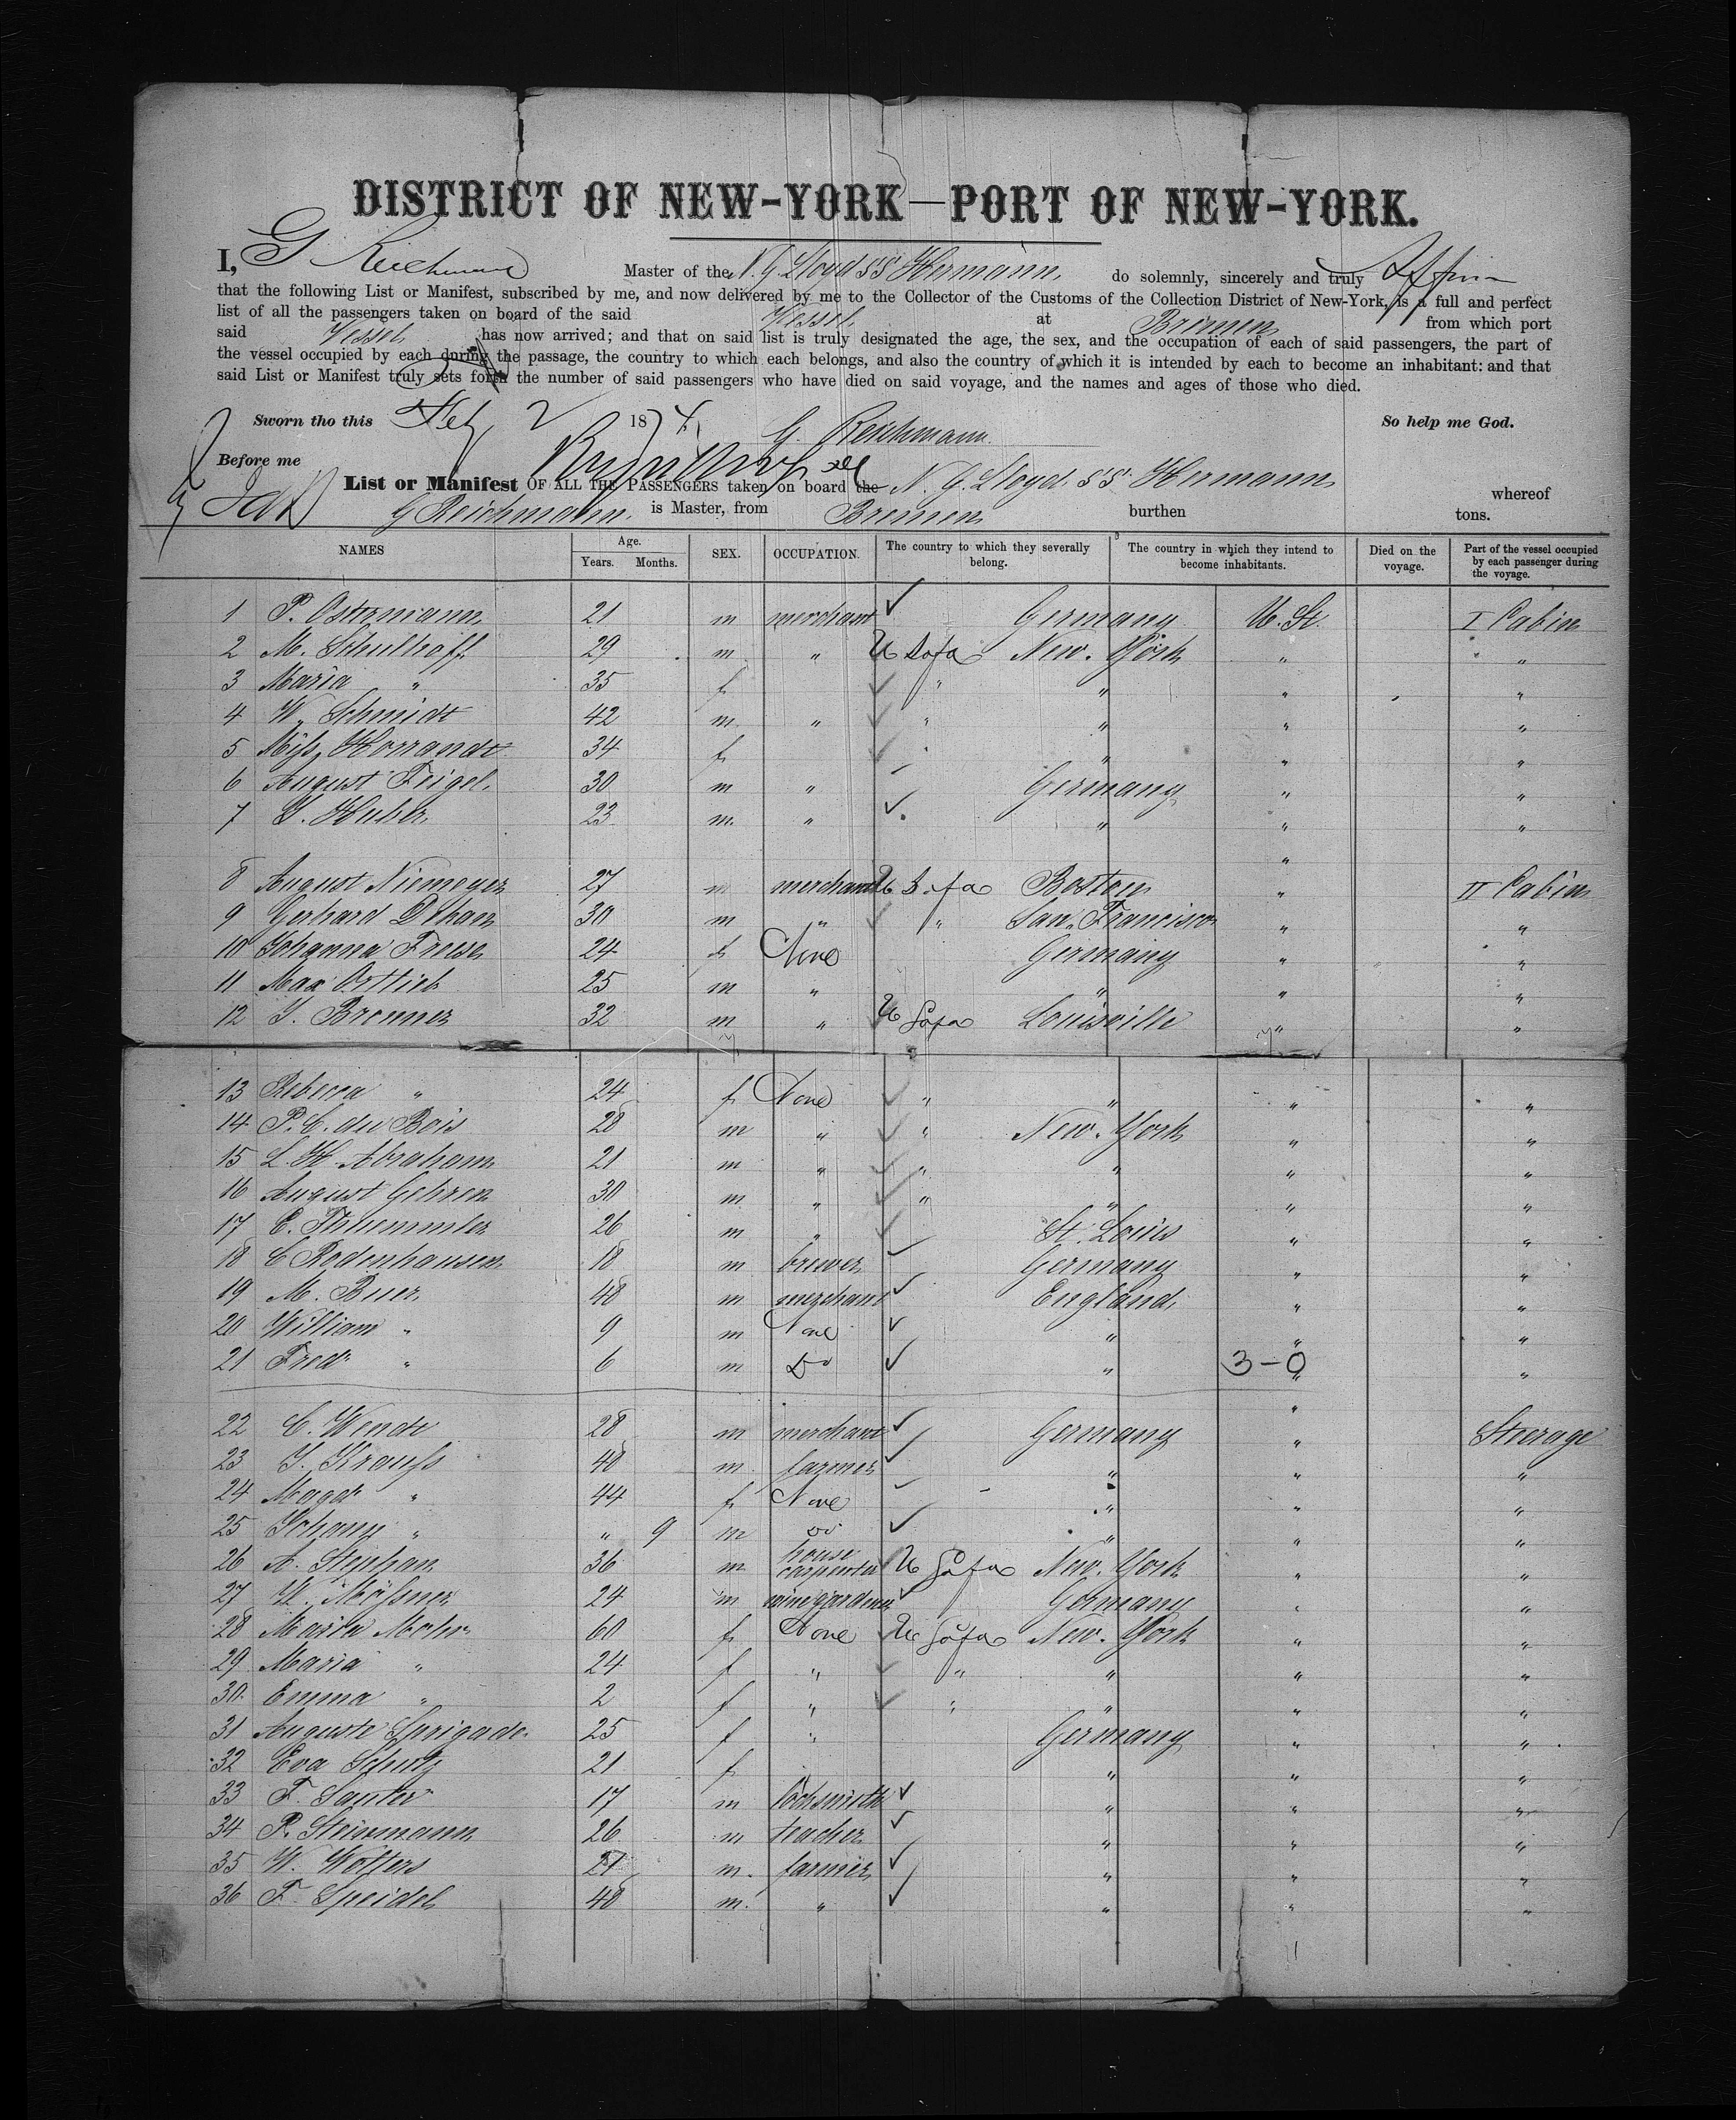 DISTRICT OF NEW-YORK—PORT OF NEW-YORK.
I, G Reichmann Master of the N. G. Lloyd SS Hermann do solemnly, sincerely and truly affirm
that the following List or Manifest, subscribed by me, and now delivered by me to the Collector of the Customs of the Collection District of New-York, is a full and perfect
list of all the passengers taken on board of the said Vessel at Bremen from which port
said Vessel has now arrived; and that on said list is truly designated the age, the sex, and the occupation of each of said passengers, the part of
the vessel occupied by each during the passage, the country to which each belongs, and also the country of which it is intended by each to become an inhabitant: and that
said List or Manifest truly sets forth the number of said passengers who have died on said voyage, and the names and ages of those who died.
Sworn tho this Feby 2 1874 G. Reichmann So help me God.
Before me
List or Manifest OF ALL THE PASSENGERS taken on board the N. G. Lloyd SS Hermann whereof
G Reichmann is Master, from Bremen burthen tons.
NAMES Age. Years. Months. SEX. OCCUPATION. The country to which they severally belong. The country in which they intend to become inhabitants. Died on the voyage. Part of the vessel occupied by each passenger during the voyage.
1 P. Ostermann 21 m merchant Germany U. St. I Cabin
2 M. Schulhoff 29 m " U S of a New York " "
3 Maria " 35 f " " " "
4 W. Schmidt 42 m " " " " "
5 Miss Horrandt 34 f " " " "
6 August Feigel 30 m " Germany " "
7 J. Huber 23 m " " " "
"
8 August Niemeyer 27 m merchant U S of a Boston " II Cabin
9 Gerhard Dehan 30 m " " San Francisco " "
10 Johanna Freese 24 f None Germany " "
11 Max Ortlieb 25 m " " " "
12 J. Bronner 32 m " U S of a Louisville " "
13 Rebecca " 24 f None " " " "
14 P. C. du Bois 28 m " " New York " "
15 L. H. Abraham 21 m " " " " "
16 August Gehren 30 m " " " " "
17 E. Thuemmler 26 m " St. Louis " "
18 C Rodenhausen 18 m brewer Germany " "
19 M. Buer 48 m merchant England " "
20 William " 9 m None " " "
21 Fredr " 6 m Do " 3-0 " "
"
22 C. Wendt 28 m merchant Germany " Steerage
23 J. Krauss 40 m farmer " " "
24 Magd " 44 f None " " "
25 Johann " " 9 m Do " " "
26 A. Stephan 36 m house carpenter U S of a New York " "
27 H. Mössner 24 m winegardner Germany " "
28 Maria Mohr 60 f None U S of a New York " "
29 Maria " 24 f " " " " "
30 Emma " 2 f " " " " "
31 Auguste Sprigade 25 f " Germany " "
32 Eva Schutz 21 f " " "
33 F. Sauter 17 m locksmith " " "
34 P. Steinmann 26 m teacher " " "
35 W. Wolters 21 m farmer " " "
36 F. Speidel 48 m " " " "